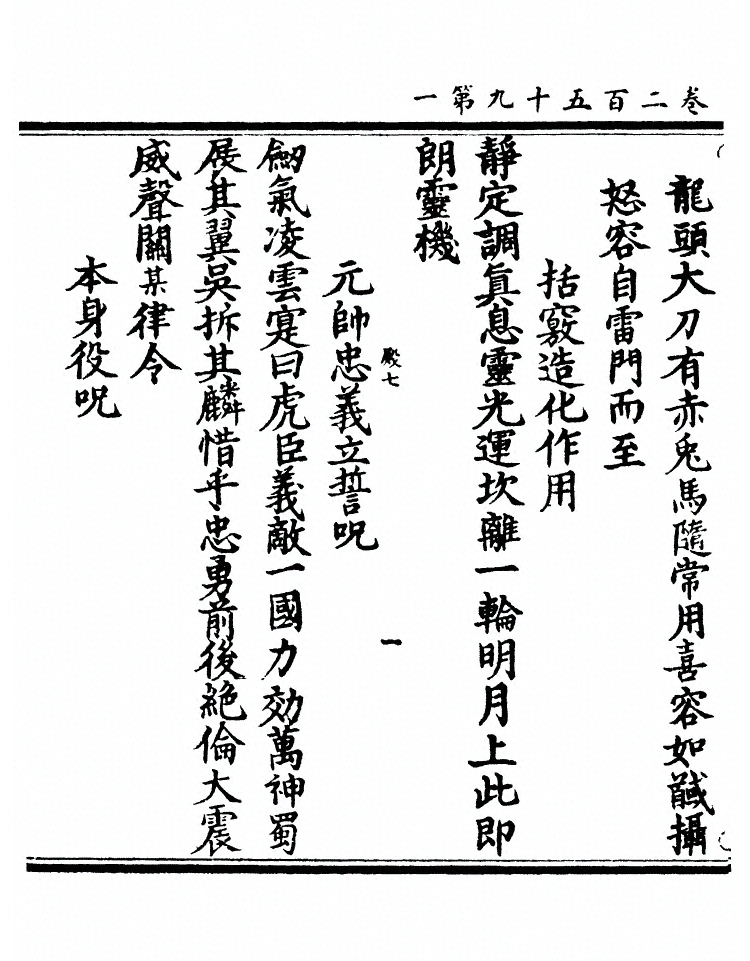 卷二百五十九第一
龍頭大刀有赤兎馬隨常用喜容如馘攝
怒容自雷門而至
括竅造化作用
靜定調眞息靈光運坎離一輪明月上此即
朗靈機
殿七
一
元帥忠義立誓呪
劒氣凌雲寔曰虎臣義敵一國力効萬神蜀
展其翼吳折其麟惜乎忠勇前後絶倫大震
威聲關某律令
本身役呪